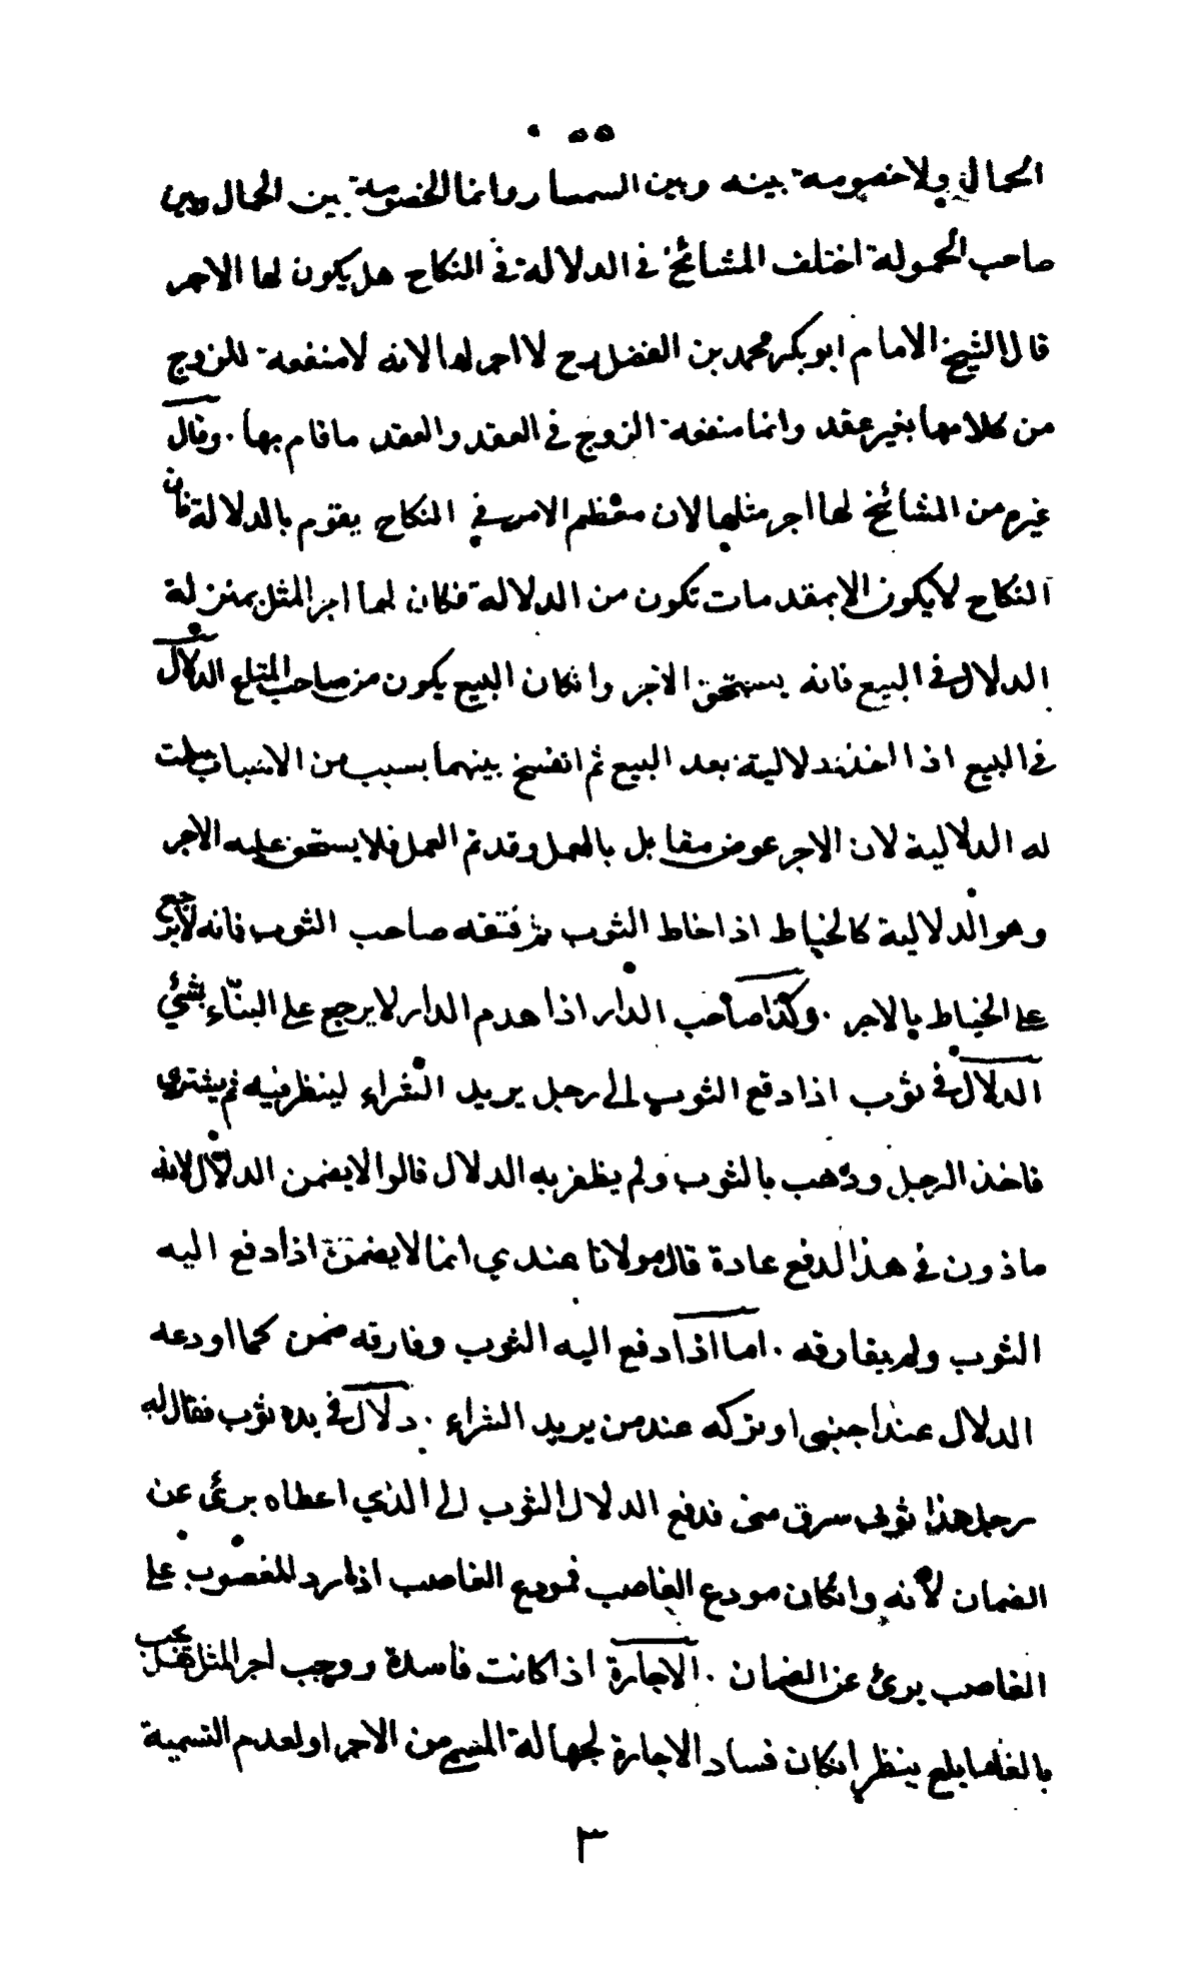 ٥٥٠
الحمال ولا خصومة بينه وبين السمسار وانما الخصومة بين الحمال وبين
صاحب الحمولة اختلف المشائخ في الدلالة في النكاح هل يكون لها الاجر
قال الشيخ الامام ابو بكر محمد بن الفضل رح لا اجر لها لانه لا منفعة للزوج
من كلامها بغير عقد وانما منفعة الزوج في العقد والعقد ما قام بها . وقال
غيره من المشائخ لها اجر مثلها لان معظم الامر في النكاح يقوم بالدلالة فان
النكاح لا يكون الا بمقدمات تكون من الدلالة فكان لها اجر المثل بمنزلة
الدلال في البيع فانه يستحق الاجر وان كان البيع يكون من صاحب المتاع الدلال
في البيع اذا اخذ دلالية بعد البيع ثم انفسخ بينهما بسبب من الاسباب سلمت
له الدلالية لان الاجر عوض مقابل بالعمل وقد تم العمل فلا يستحق عليه الاجر
وهو الدلالية كالخياط اذا خاط الثوب ثم فتقه صاحب الثوب فانه لا يرجع
على الخياط بالاجر . وكذا صاحب الدار اذا هدم الدار لا يرجع على البنّاء بشئي
الدلال في ثوب اذا دفع الثوب الى رجل يريد الشراء لينظر فيه ثم يشتري
فاخذ الرجل وذهب بالثوب ولم يظفر به الدلال قالوا لا يضمن الدلال لانه
ماذون في هذا الدفع عادة قال مولانا عندي انما لا يضمن اذا دفع اليه
الثوب ولم يفارقه . اما اذا دفع اليه الثوب وفارقه ضمن كما اودعه
الدلال عند اجنبي او تركه عند من يريد الشراء . دلال في يده ثوب فقال له
رجل هذا ثوبي سرق مني فدفع الدلال الثوب الى الذي اعطاه برئ عن
الضمان لانه وان كان مودع الغاصب فمودع الغاصب اذا رد المغصوب على
الغاصب يرئ عن الضمان . الاجارة اذا كانت فاسدة ووجب اجر المثل يجب
بالغا ما بلغ ينظر ان كان فساد الاجارة لجهالة المسمى من الاجر او لعدم التسمية
٣